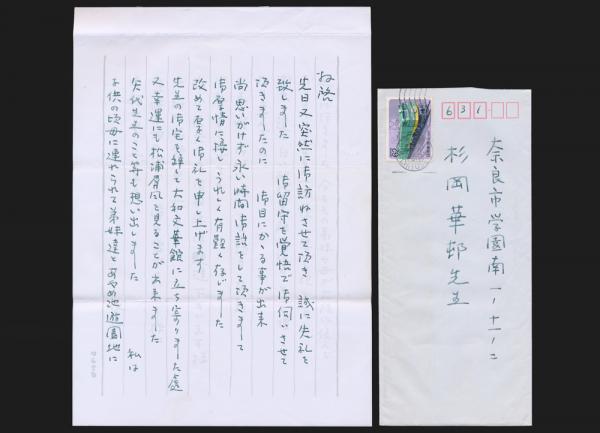 拝啓
先日は又突然に御訪ねさせて頂き 誠に失礼を
致しました 御留守を覚悟で御伺いさせて
頂きましたのに 御目にかゝる事が出来
尚思いがけず永い時間御話をして頂きまして
御厚情に接し うれしく有難く存じました
改めて厚く御礼を申し上げます
先生の御宅を辞して大和文華館に立ち寄りました處
又幸運にも松浦屏風を見ることが出来ました
矢代先生のこと等も想い出しました 私は
子供の頃母に連れられて弟妹達とあやめ池遊園地に
631
奈良市学園南一ノ十一ノ二
杉岡華邨先生